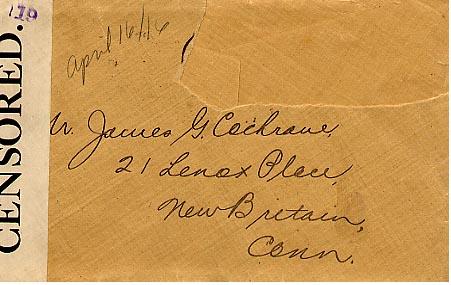 CENSORED.
April 16/16
James G. Cochrane,
21 Lenox Place,
New Britain,
Conn.